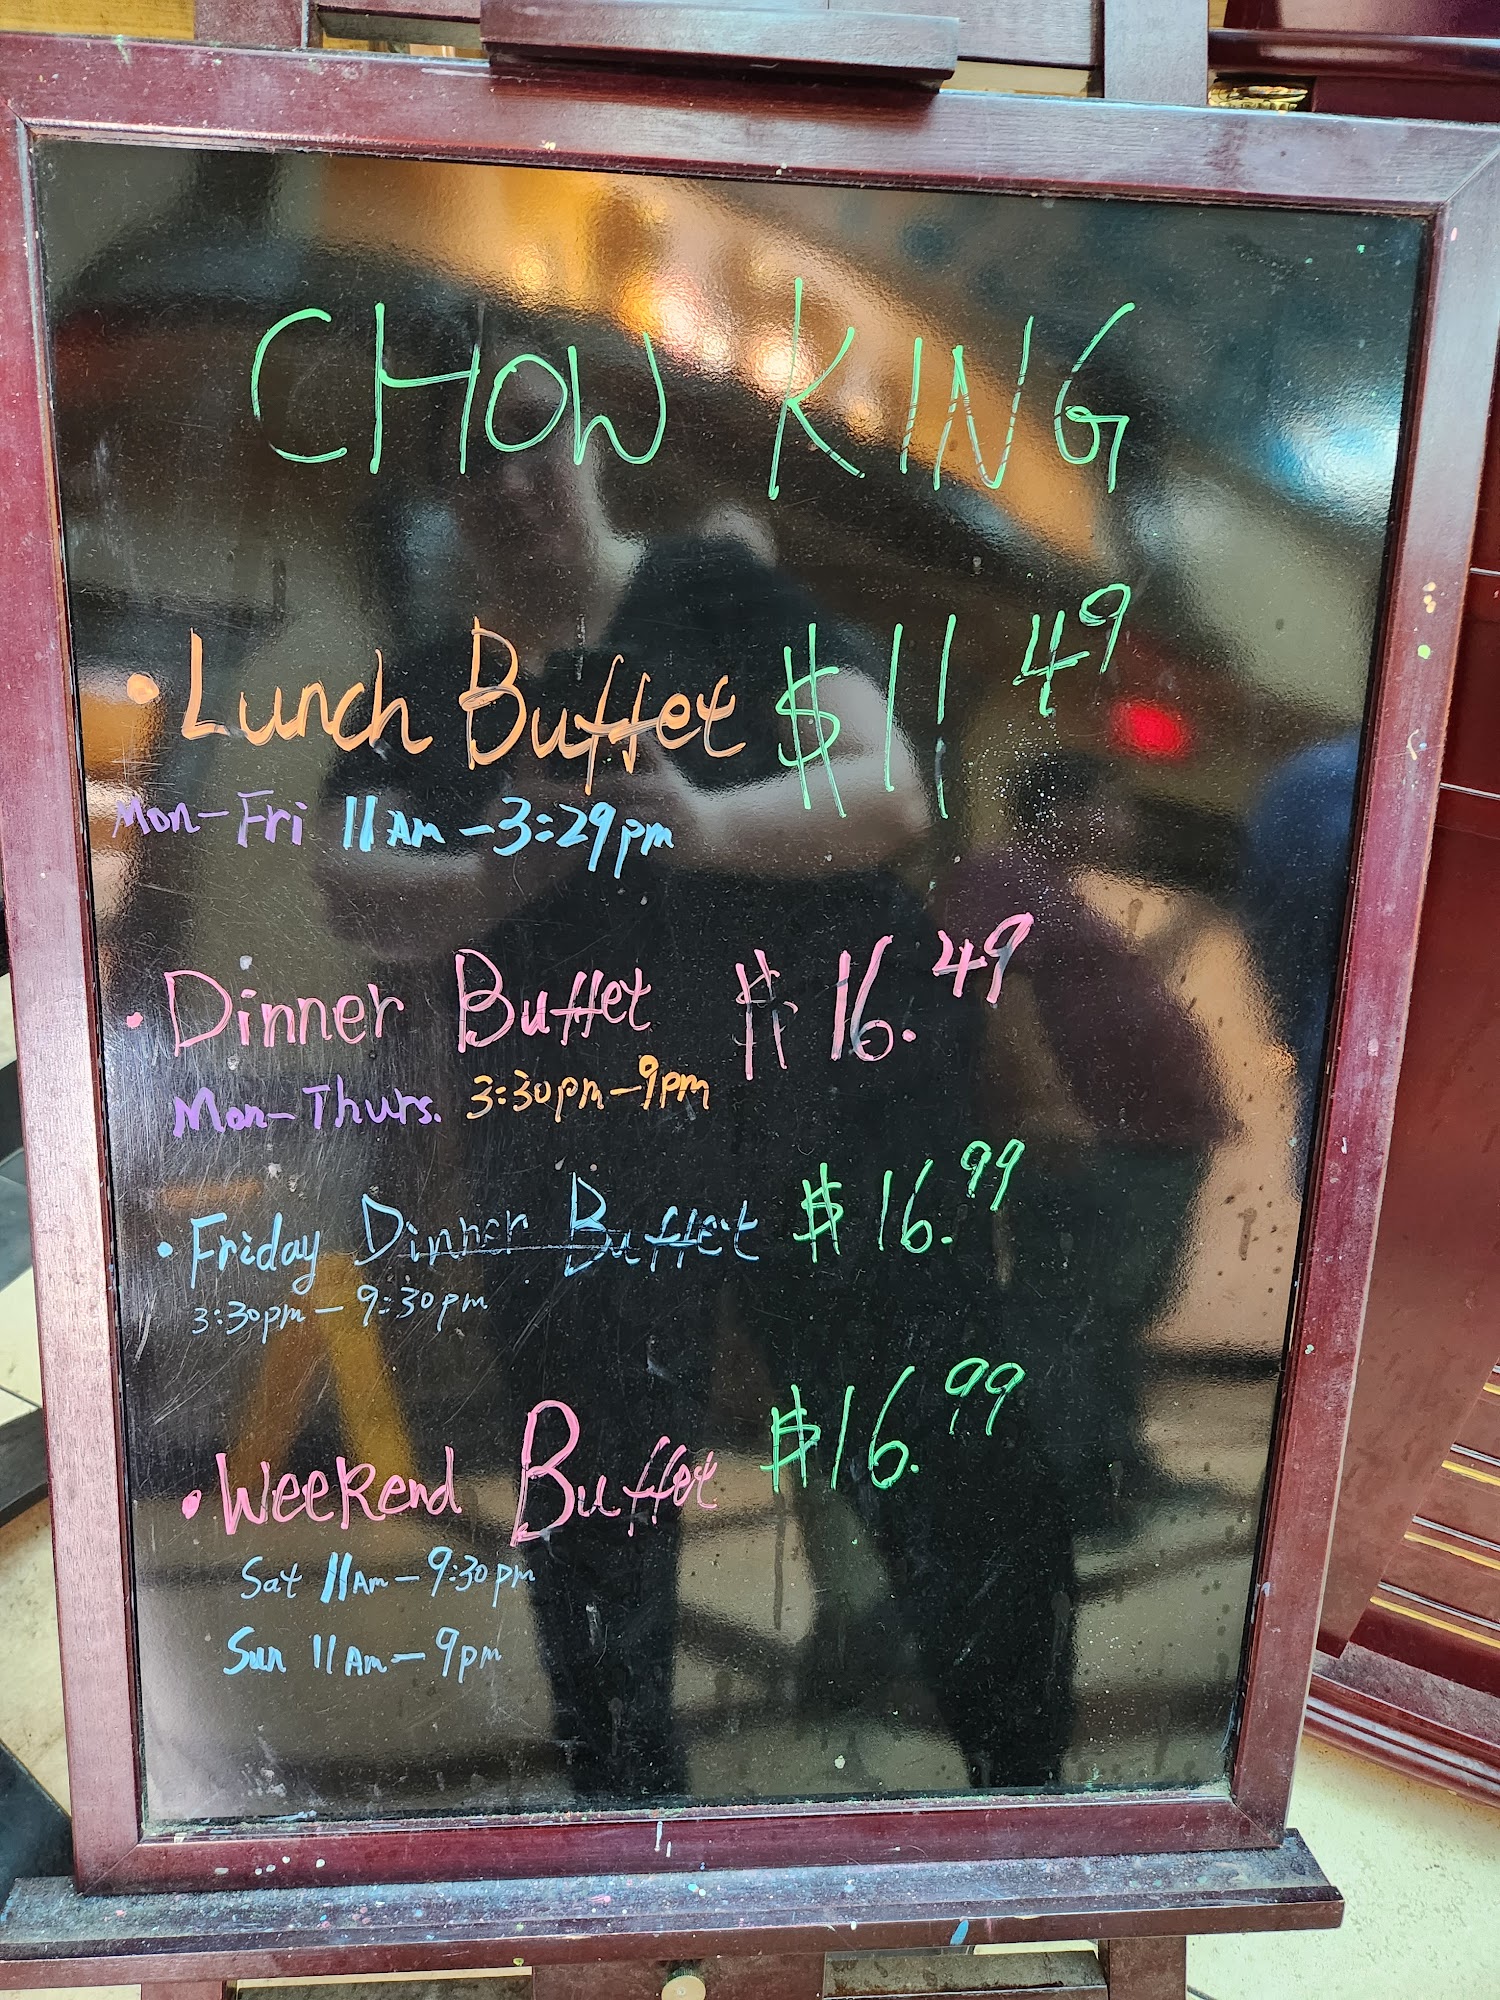 CHOW KING
• Lunch Buffet $11.49
Mon-Fri 11Am-3:29pm
• Dinner Buffet $16.49
Mon-Thurs. 3:30pm-9pm
• Friday Dinner Buffet $16.99
3:30pm-9:30pm
• Weekend Buffet $16.99
Sat 11Am-9:30pm
Sun 11Am-9pm